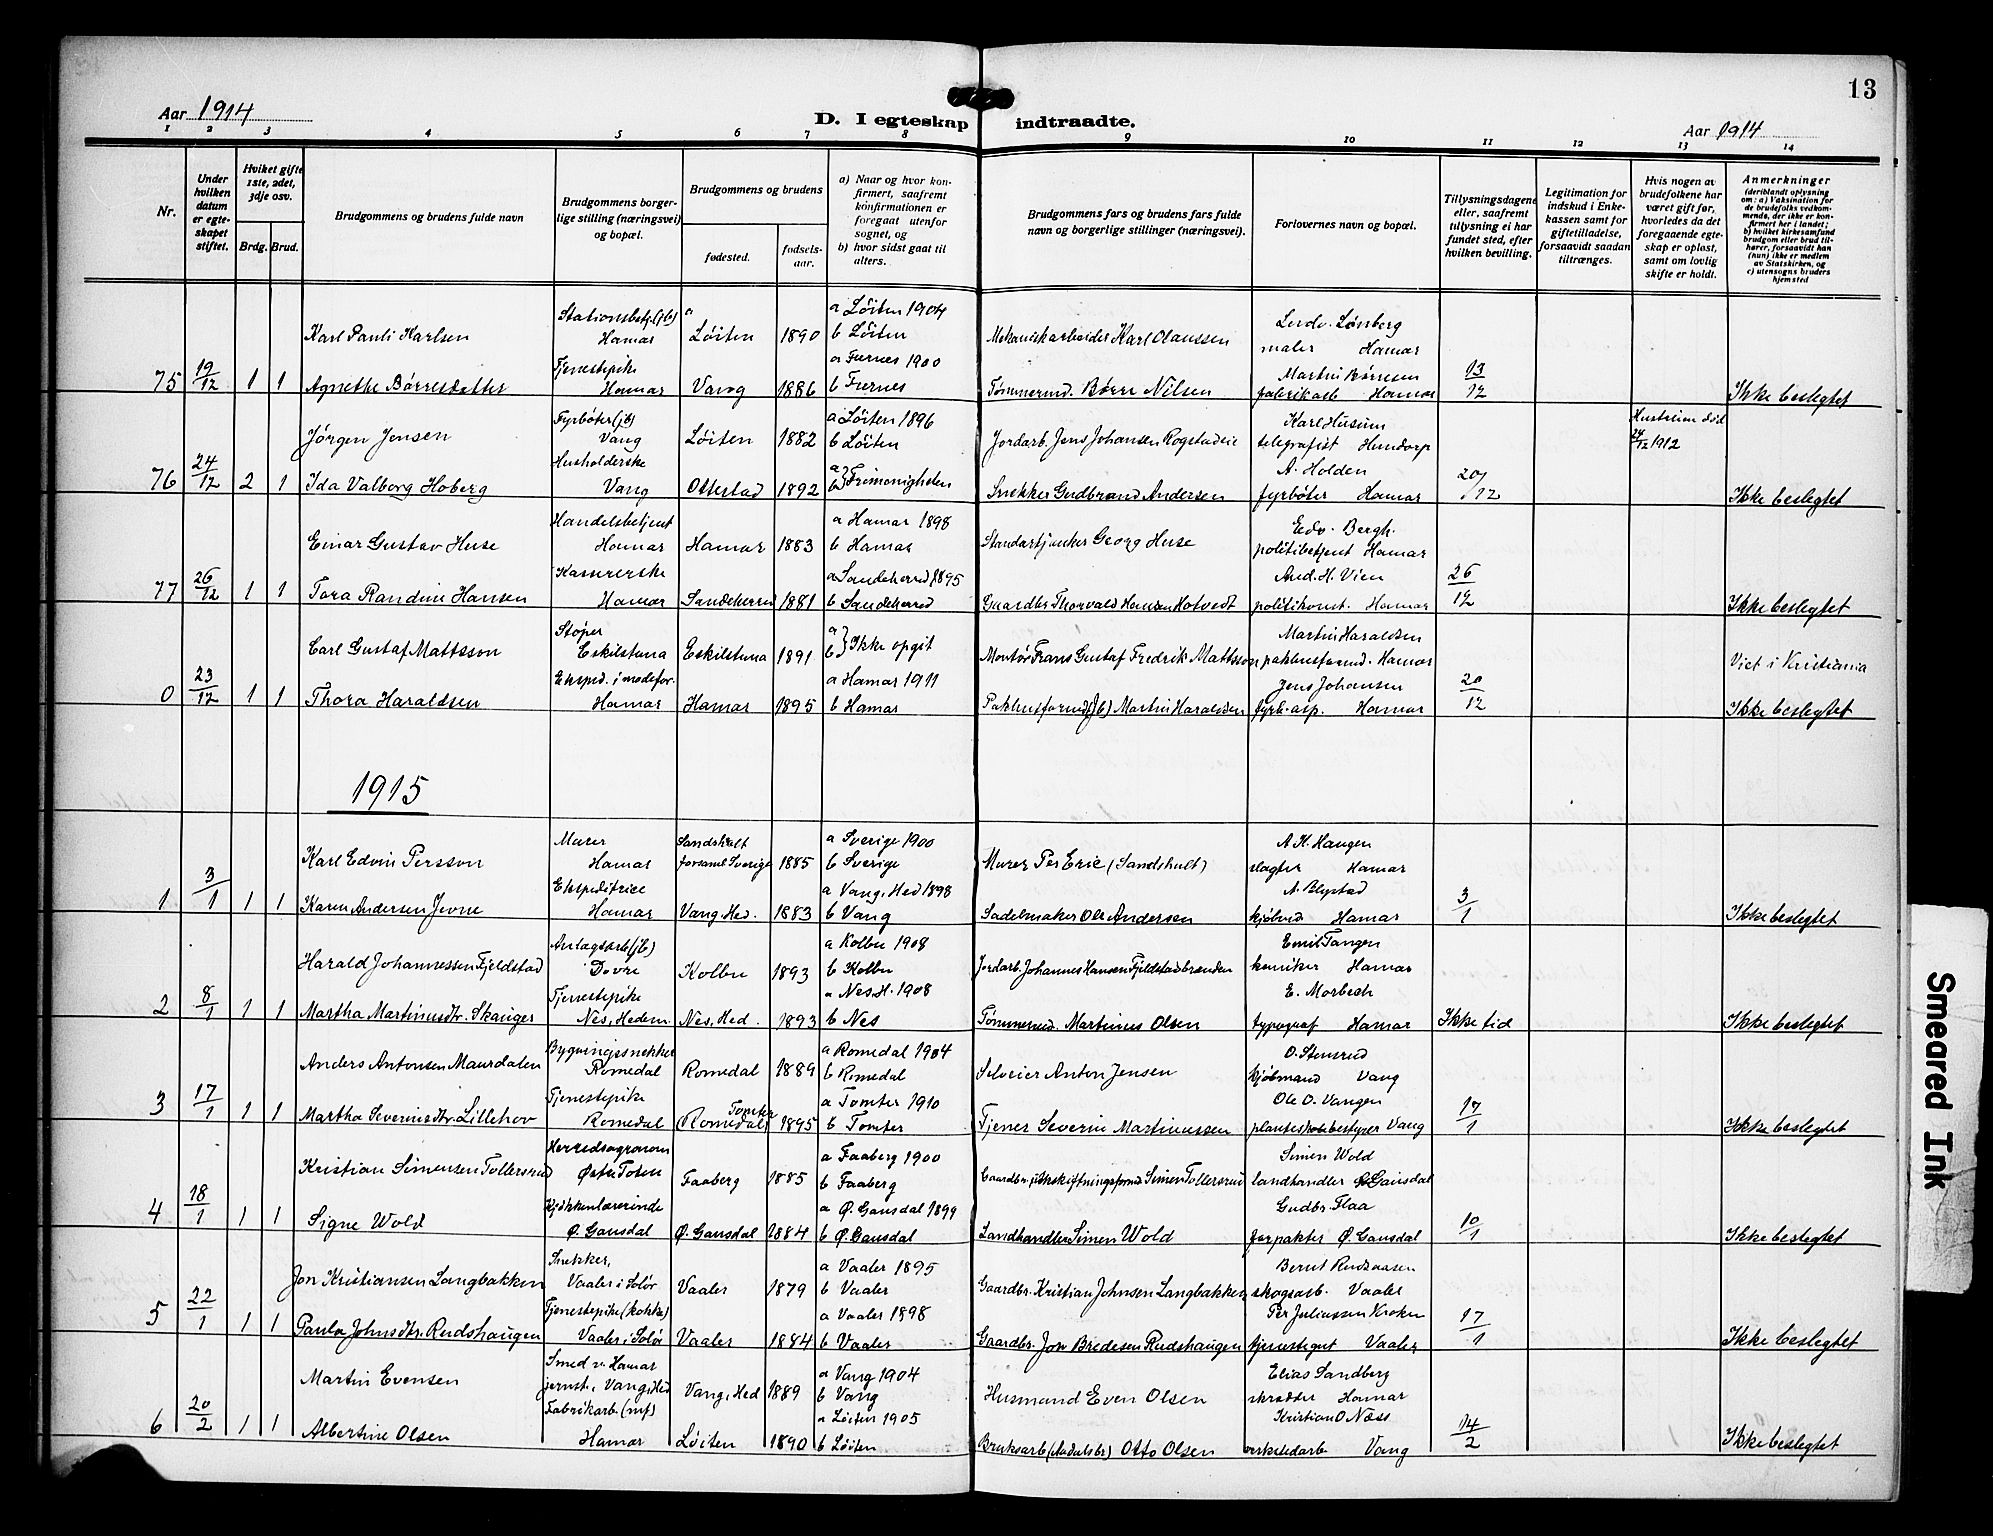 13
Aar 1914
D. I egteskap indtraadte.
Aar 1914
1 2 3 4 5 6 7 8 9 10 11 12 13 14
Nr.
Under hvilken datum er egteskapet stiftet.
Hvilket gifte 1ste, 2det, 3dje osv.
Brdg. Brud.
Brudgommens og brudens fulde navn
Brudgommens borgerlige stilling (næringsvei) og bopæl.
Brudgommens og brudens
fødested.
fødselsaar.
a) Naar og hvor konfirmert, saafremt konfirmationen er foregaat utenfor sognet, og
b) hvor sidst gaat til alters.
Brudgommens fars og brudens fars fulde navn og borgerlige stillinger (næringsvei).
Forlovernes navn og bopæl.
Tillysningsdagene eller, saafremt tillysning ei har fundet sted, efter hvilken bevilling.
Legitimation for indskud i Enkekassen samt for giftetilladelse, forsaavidt saadan tiltrænges.
Hvis nogen av brudefolkene har været gift før, hvorledes da det foregaaende egteskap er opløst, samt om lovlig skifte er holdt.
Anmerkninger
(deriblandt oplysning om: a) Vaksination for de brudefolks vedkommende, der ikke er konfirmert her i landet; b) hvilket kirkesamfund brudgom eller brud tilhører, forsaavidt han (hun) ikke er medlem av Statskirken, og c) utensogns bruders hjemsted
Karl Pauli Karlsen Stationsbetj. (jb) Hamar Løiten 1890 a Løiten 1904 b Løiten Mekanisk arbeider Karl Olaussen Lønberg maler Hamar
75 19/12 1 1 Agnethe Børresdatter Tjenestepike Hamar Vang 1886 a Furnes 1900 b Furnes Tømmermd. Børre Nilsen Martin Børresen fabrikarb Hamar 13/12 Ikke beslegtet
Jørgen Jensen Fyrbøter (jb) Vang Løiten 1882 a Løiten 1896 b Løiten Jordarb. Jens Johansen Rogstadeie Karl Husum telegrafist Hundorp Hustruen død 24/12 1912
76 24/12 2 1 Ida Valborg Hoberg Husholderske Vang Ottestad 1892 a b } Frimenigheden Snekker Gudbrand Andersen A. Holden fyrbøter Hamar 20/12 Ikke beslegtet
Einar Gustav Huse Handelsbetjent Hamar Hamar 1883 a Hamar 1898 b Hamar Standartjunker Georg Huse Edv. Bergh. politibetjent Hamar
77 26/12 1 1 Tora Randine Hansen Kassererske Hamar Sandeherred 1881 a Sandeherred 1895 b Sandeherred Gaardbr. Thorvald Hansen Hotvedt And. H. Vien politikonst. Hamar 26/12 Ikke beslegtet
Carl Gustaf Mattsson Støper Eskilstuna Eskilstuna 1891 a b } Ikke opgit Montør Frans Gustaf Fredrik Mattsson Martin Haraldsen pakhusformd. Hamar Viet i Kristiania
0 23/12 1 1 Thora Haraldsen Eksped. i modefor. Hamar Hamar 1895 a Hamar 1911 b Hamar Pakhusformd (jb) Martin Haraldsen Jens Johansen fyrb. asp. Hamar 20/12 Ikke beslegtet
1915
Karl Edvin Persson Murer Hamar Sandshult forsaml Sverige 1885 a Sverige 1900 b Sverige Murer Per Eric (Sandshult) A. H. Haugen slagter Hamar
1 3/1 1 1 Karen Andersen Jevne Ekspeditrice Hamar Vang, Hed. 1883 a Vang, Hed 1898 b Vang Sadelmaker Ole Andersen A. Blystad Hamar 3/1 Ikke beslegtet
Harald Johannessen Fjeldstad Anlægsarb (jb) Dovre Kolbu 1893 a Kolbu 1908 b Kolbu Jordarb. Johannes Hansen Fjeldstadbraenden Emil Tangen kemiker Hamar
2 8/1 1 1 Martha Martinusdtr. Skauger Tjenestepike Nes, Hedem. Nes, Hed. 1893 a Nes. H. 1908 b Nes Tømmermd. Martinus Olsen E. Morbech typograf Hamar Ikke tid Ikke beslegtet
Anders Antonsen Maurdalen Bygningssnekker Romedal Romedal 1889 a Romedal 1904 b Romedal Selveier Anton Jensen O. Stensrud kjøbmand Vang
3 17/1 1 1 Martha Severinsdtr. Lillehov Tjenestepike Romedal Tomter (Romedal) 1895 a Tomter 1910 b Tomter Tjener Severin Martinussen Ole O. Vangen planteskolebestyrer Vang 17/1 Ikke beslegtet
Kristian Simensen Tollersrud Herredsagronom Østre Toten Faaberg 1885 a Faaberg 1900 b Faaberg Gaardbr. utskiftningsformd Simen Tollersrud Simen Wold landhandler Ø Gausdal
4 18/1 1 1 Signe Wold Kjøkkenlærerinde Ø. Gausdal Ø. Gausdal 1884 a Ø. Gausdal 1899 b Ø. Gausdal Landhandler Simen Wold Gudbr. Flaa forpakter Ø. Gausdal 10/1 Ikke beslegtet
Jon Kristiansen Langbakken Snekker, Vaaler i Solør Vaaler 1879 a Vaaler 1895 b Vaaler Gaardbr. Kristian Johnsen Langbakken Bernt Rudsaasen skogsarb. Vaaler
5 22/1 1 1 Paula Johnsdtr. Rudshaugen Tjenestepike (kokke) Vaaler i Solør Vaaler 1884 a Vaaler 1898 b Vaaler Gaardbr. Jon Bredesen Rudshaugen Per Juliussen Kroken tjenestegut Vaaler 17/1 Ikke beslegtet
Martin Evensen Smed v. Hamar jernst., Vang, Hed Vang, Hed 1889 a Vang 1904 b Vang Husmand Even Olsen Elias Sandberg skrædder Hamar
6 20/2 1 1 Albertine Olsen Fabrikarb. (mf) Hamar Løiten 1890 a Løiten 1905 b Løiten Bruksarb (Aadalsbr) Otto Olsen Kristian O. Næss verkstedarb Vang 14/2 Ikke beslegtet
Smeared Ink